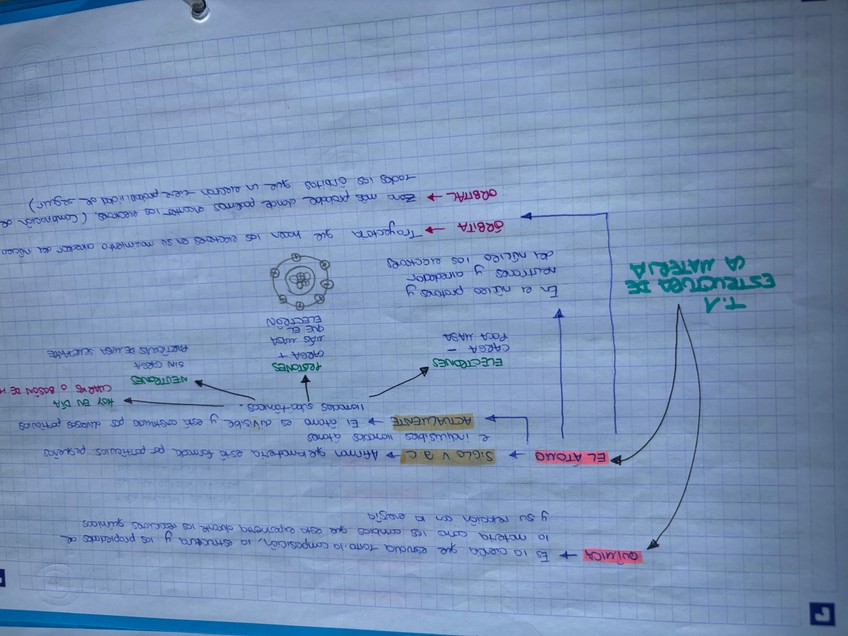 T.1
ESTRUCTURA DE
LA MATERIA
QUÍMICA → Es la ciencia que estudia tanto la composición, la estructura y las propiedades de
la materia como los cambios que esta experimenta durante las reacciones químicas
y su relación con la energía
EL ÁTOMO → SIGLO V a C → Afirman que la materia está formada por partículas pequeñas
e indivisibles llamadas átomos
ACTUALMENTE → El átomo es divisible y está constituido por diversas partículas
llamadas subatómicas.
HOY EN DÍA
QUARKS O BOSÓN DE H
ELECTRONES
CARGA -
POCA MASA
PROTONES
CARGA +
MÁS MASA
QUE EL
ELECTRÓN
NEUTRONES
SIN CARGA
PARTÍCULAS DE MASA SEMEJANTE
En el núcleo protones y
neutrones y alrededor
del núcleo los electrones
ÓRBITA → Trayectoria que hacen los electrones en su movimiento alrededor del núcleo
ORBITAL → Zona más probable donde podemos encontrar los electrones. (Combinación de
todas las órbitas que un electrón tiene probabilidad de seguir)